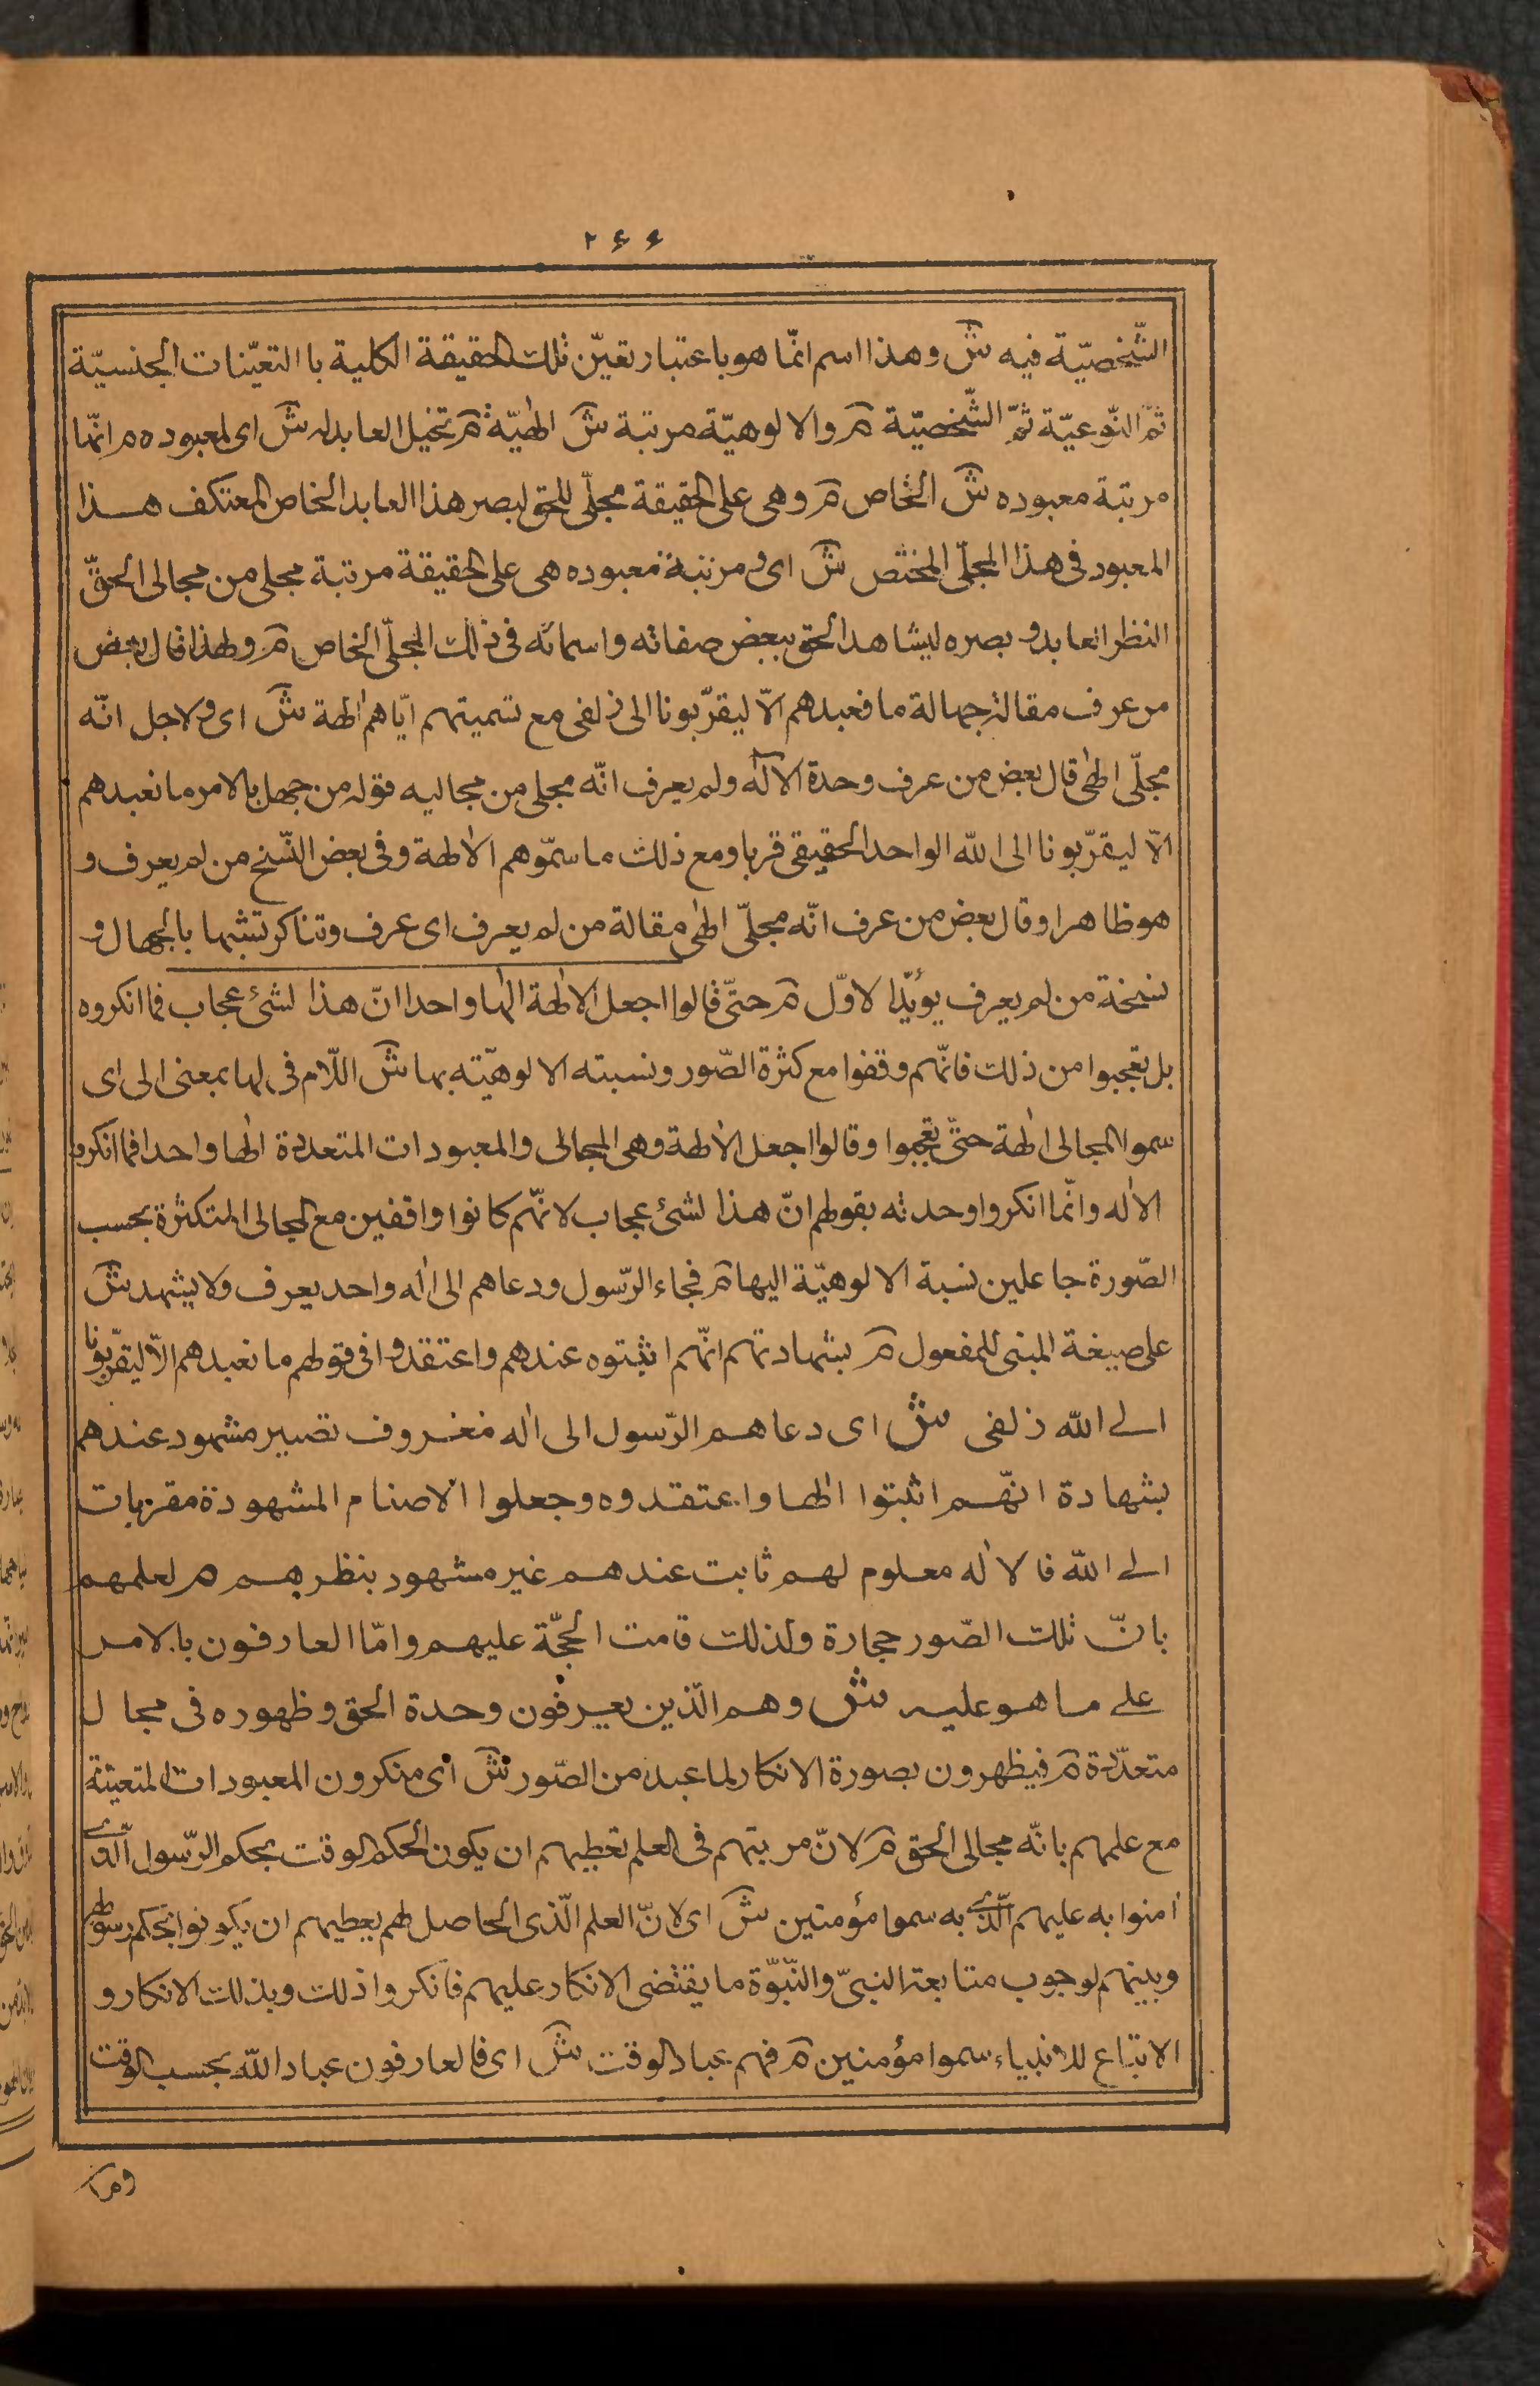 ۲۶۶
الشّخصيّة فيه ش وهذا اسم انّما هو باعتبار تعيّن تلك الحقيقة الكلية با التعيّنات الجنسيّة
ثمّ النّوعيّة ثمّ الشّخصيّة م والالوهيّة مرتبة ش الهيّة م تخيل العابد له ش اى لمعبوده م انّها
مرتبة معبوده ش الخاص م وهى على الحقيقة مجلّى للحق لبصر هذا العابد الخاص المعتكف هذا
المعبود فى هذا المجلّى المختص ش اى و مرتبة معبوده هى على الحقيقة مرتبة مجلى من مجالى الحقّ
النظر العابد و بصره ليشاهد الحق ببعض صفاته واسمائه فى ذلك المجلّى الخاص م ولهذا قال بعض
من عرف مقالة جهالة ما نعبدهم الاّ ليقرّبونا الى زلفى مع تسميتهم ايّاهم الهة ش اى ولاجل انّه
مجلّى الهى قال بعض من عرف وحدة الاله ولم يعرف انّه مجلى من مجاليه قوله من جهل بالامر ما نعبدهم
الاّ ليقرّبونا الى الله الواحد الحقيقى قربا ومع ذلك ما سمّوهم الا الهة وفى بعض النّسخ من لم يعرف و
هو ظاهر او قال بعض من عرف انّه مجلّى الهى مقالة من لم يعرف اى عرف وتناكر تشبها بالجهال و
نسخة من لم يعرف يؤيّد الاوّل م حتّى قالوا اجعل الالهة الها واحدا انّ هذا لشئ عجاب فما انكروه
بل تعجبوا من ذلك فانّهم وقفوا مع كثرة الصّور ونسبته الالوهيّته بها ش اللّام فى لها بمعنى الى اى
سموا المجالى الهة حتّى تعجبوا وقالوا اجعل الالهة وهى المجالى والمعبودات المتعددة الها واحدا فما انكروا
الاله وانّما انكروا وحدته بقولهم انّ هذا لشئ عجاب لانّهم كانوا واقفين مع المجالى المتكثرة بحسب
الصّورة جاعلين نسبة الالوهيّة اليها م فجاء الرّسول ودعاهم الى اله واحد يعرف ولا يشهد ش
على صيغة المبنى للمفعول م بشهادتهم انّهم اثبتوه عندهم واعتقدوا فى قولهم ما نعبدهم الاّ ليقرّبونا
الى الله زلفى ش اى دعاهم الرّسول الى اله معروف تصير مشهود عندهم
بشهادة انّهم اثبتوا الها واعتقدوه وجعلوا الاصنام المشهودة مقربات
الى الله فالاله معلوم لهم ثابت عندهم غير مشهود بنظرهم م لعلمهم
بانّ تلك الصّور حجارة ولذلك قامت الحجّة عليهم وامّا العارفون بالامر
على ما هو عليه ش وهم الّذين يعرفون وحدة الحق وظهوره فى مجال
متعدّدة م فيظهرون بصورة الانكار لما عبد من الصّور ش اى منكرون المعبودات المتعينة
مع علمهم بانّه مجالى الحق م لانّ مرتبتهم فى العلم تعطيهم ان يكون الحكم الوقت بحكم الرّسول الّذى
امنوا به عليهم الّذى به سموا مؤمنين ش اى لانّ العلم الّذى الحاصل لهم يعطيهم ان يكونوا بحكم رسولهم
وبينهم لوجوب متابعة النبىّ والنّبوّة ما يقتضى الانكار عليهم فانكروا ذلك وبذلك الانكار و
الاتباع للانبياء سموا مؤمنين م فهم عباد الوقت ش اى فالعارفون عباد الله بحسب الوقت